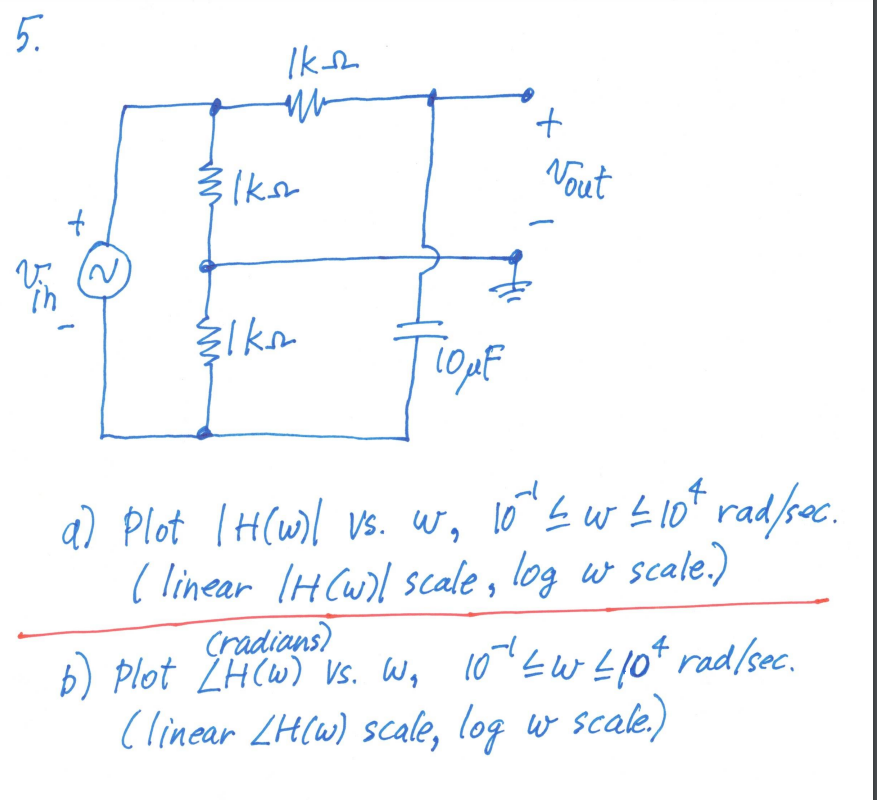 5.
1kΩ
+
Vout
-
1kΩ
+
Vin
~
-
1kΩ
10μF
a) Plot |H(ω)| vs. ω, 10⁻¹ ≤ ω ≤ 10⁴ rad/sec.
(linear |H(ω)| scale, log ω scale.)
(radians)
b) Plot ∠H(ω) vs. ω, 10⁻¹ ≤ ω ≤ 10⁴ rad/sec.
(linear ∠H(ω) scale, log ω scale.)